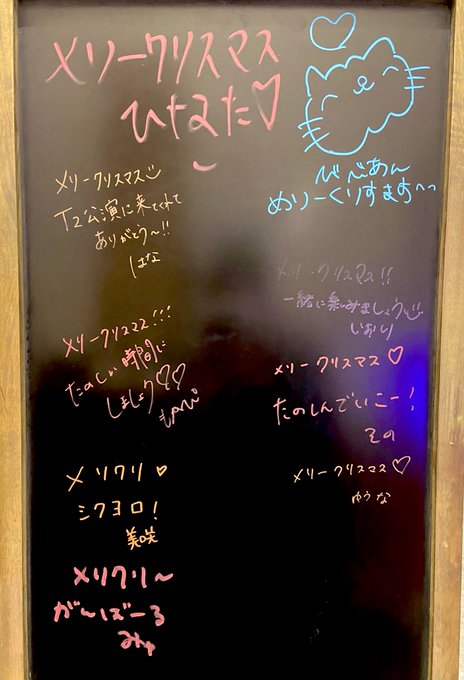 メリークリスマス
ひなた♡
びびあん
めりーくりすます
メリークリスマス
T2公演に来てくれて
ありがとう〜!!
はな
メリークリスマス!!
一緒に楽しみましょう
いおり
メリークリスマス!!!
たのしい時間に
しましょう♡♡
メリークリスマス♡
たのしんでいこー!
その
メリークリスマス♡
ゆうな
メリクリ♥
シクヨロ!
美咲
メリクリ〜
がんばーる
みゅ